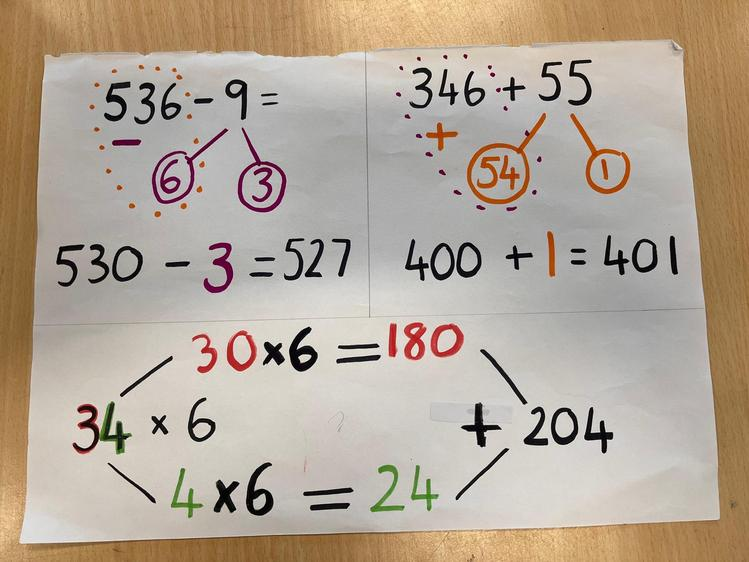 536 - 9 =
-
6 3
530 - 3 = 527
346 + 55
+
54 1
400 + 1 = 401
30 × 6 = 180
34 × 6
+ 204
4 × 6 = 24